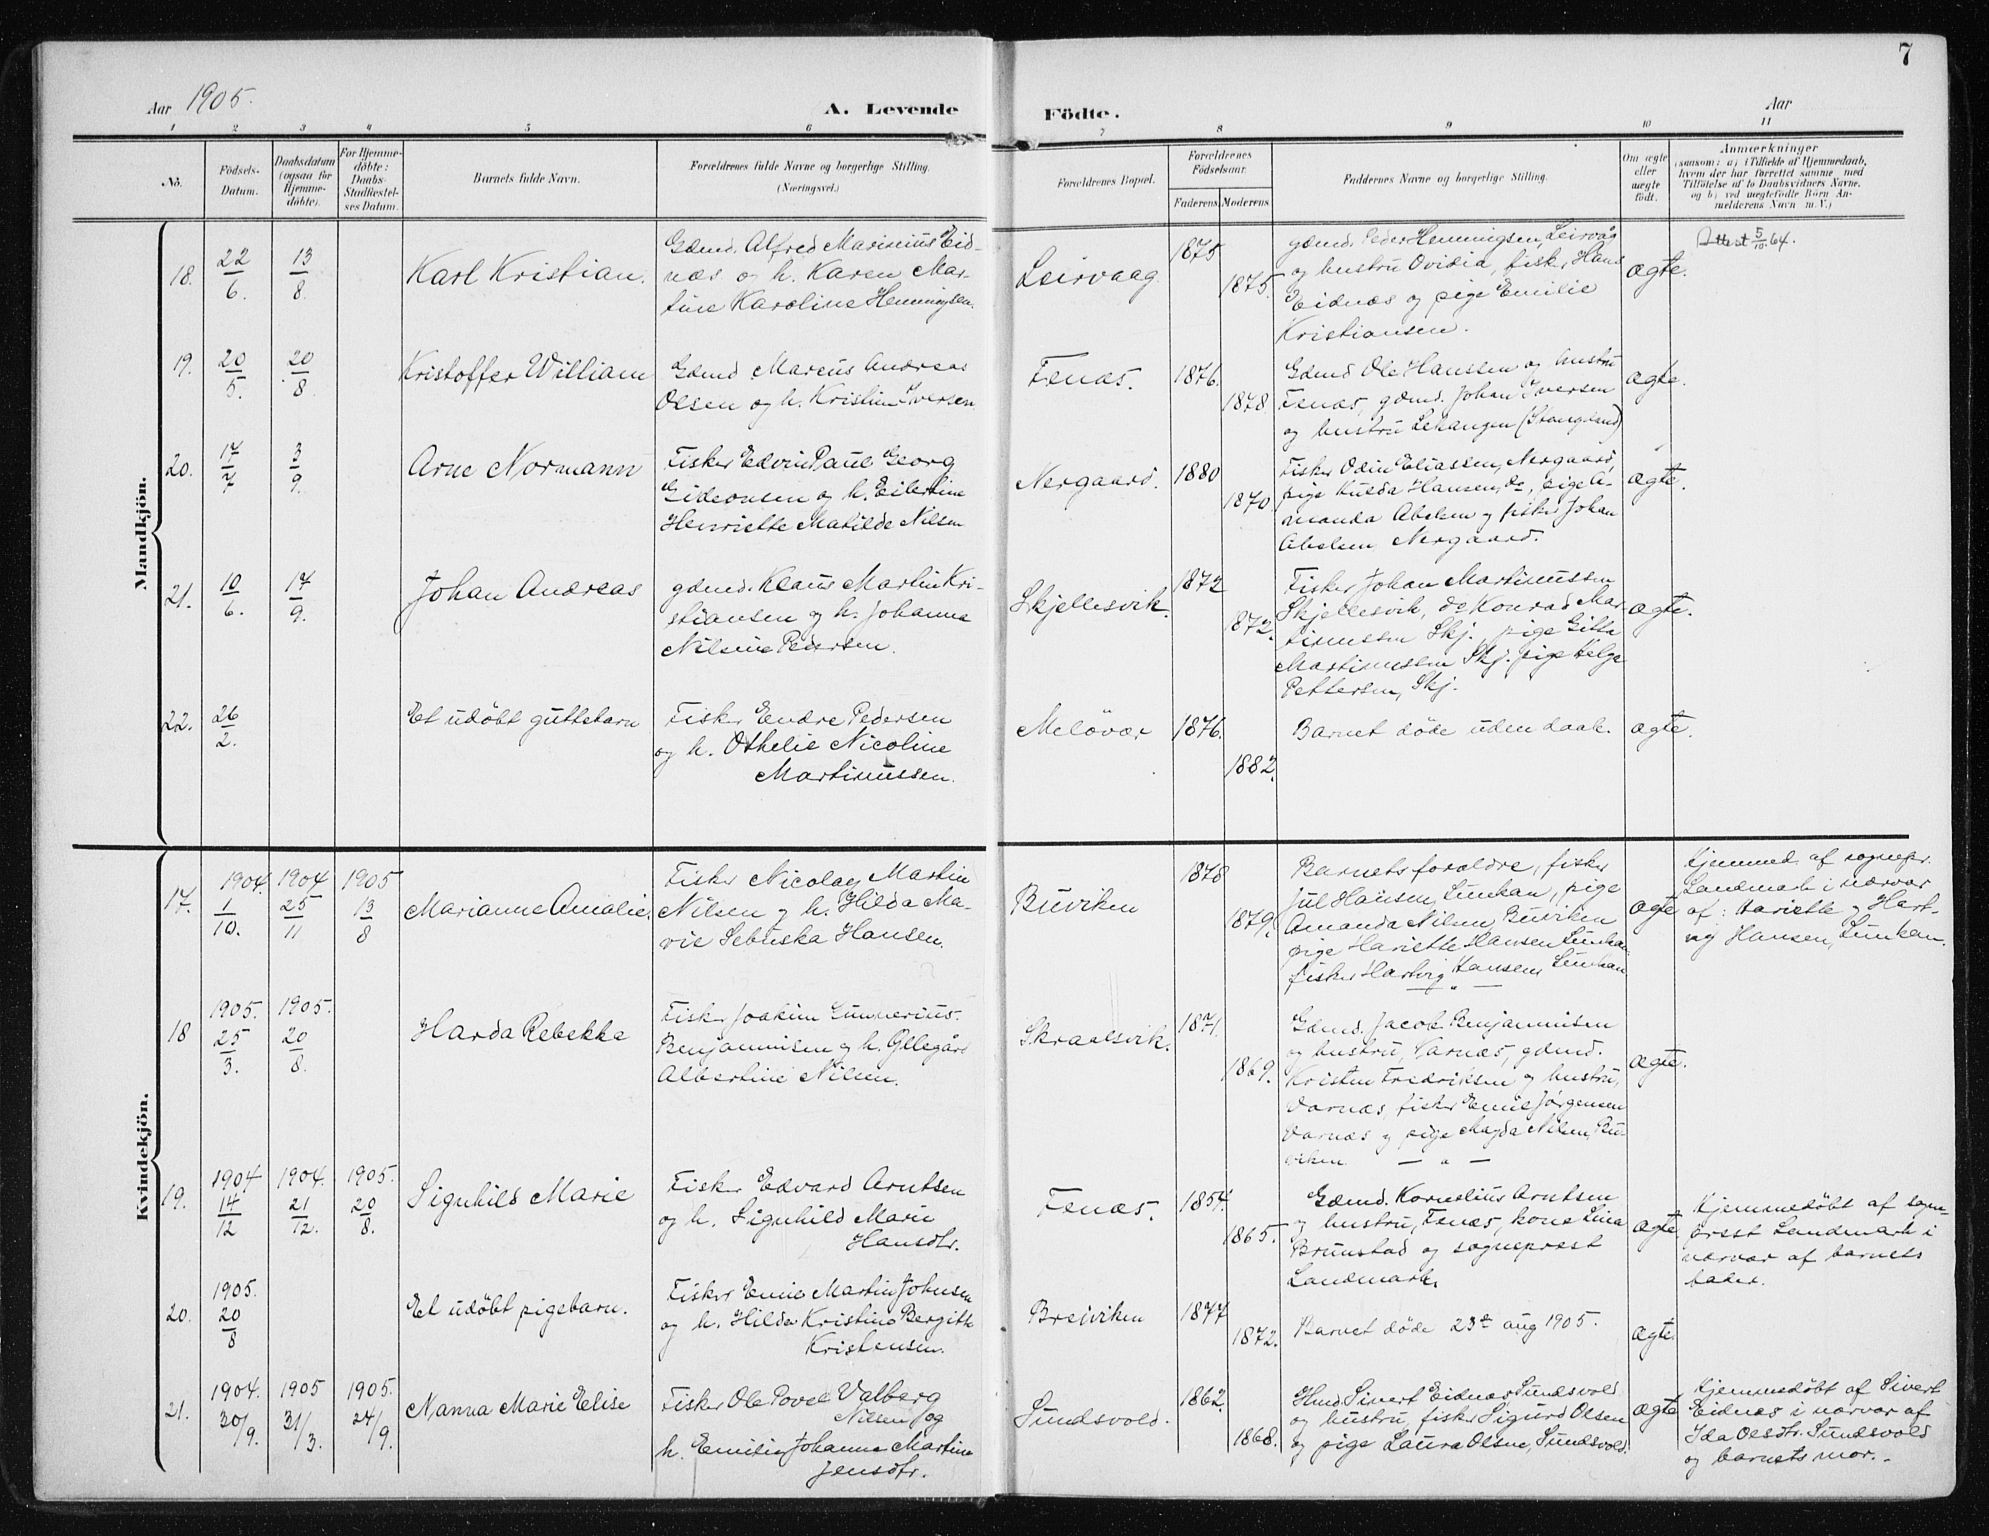 7
Aar 1905.
A. Levende
Födte.
Aar
1 2 3 4 5 6 7 8 9 10 11
No.
Födsels-Datum.
Daabsdatum (ogsaa for Hjemmedöbte).
For Hjemmedöbte: Daabs-Stadfæstelses Datum.
Barnets fulde Navn.
Forældrenes fulde Navne og borgerlige Stilling.
(Næringsvei.)
Forældrenes Bopæl.
Forældrenes Födselsaar.
Faderens. Moderens.
Faddernes Navne og borgerlige Stilling.
Om ægte eller uægte födt.
Anmærkninger
(saasom: a) i Tilfælde af Hjemmedaab,
hvem der har forrettet samme med
Tilföielse af to Daabsvidners Navne,
og b) ved uægtefödte Börn Anmelderens Navn m. V.)
Mandkjön.
18. 22/6. 13/8. Karl Kristian.
Gdmd. Alfred Marinius Eid-
næs og h. Karen Mar-
tine Karoline Henningsen.
Leirvaag
1875
1875.
gdmd. Peder Henningsen, Leirvåg
og hustru Ovidia, fisker Hans
Eidnæs og pige Emilie
Kristiansen.
ægte.
Attest 5/10. 64.
19. 20/5. 20/8. Kristoffer William
Gdmd. Marcus Andreas
Olsen og h. Kristine Iversen
Fenæs.
1876.
1878
Gdmd Ole Hanssen og hustru
Fenæs, gdmd. Johan Iversen
og hustru Lekangen (Stangeland)
ægte.
20. 17/7 3/9. Arne Normann
Fisker Edvin Paul Georg
Gideonsen og h. Eilertine
Henriette Matilde Nilsen
Nergaard.
1880
1870
Fisker Odin Eliassen, Nergaard,
pige Hulda Hansen, do, pige A-
manda Abelsen og fisker Johan
Abelsen, Nergaard.
ægte.
21. 10/6. 17/9. Johan Andreas
gdmd. Klaus Martin Kri-
stiansen og h. Johanna
Nilsine Pedersen.
Skjellesvik.
1872
1872.
Fisker Johan Martinussen
Skjellesvik, do Konrad Mar-
tinussen Skj., pige Gitta
Martinussen Skj. pige Helga
Pettersen, Skj.
ægte.
22. 26/2. Et udöbt guttebarn
Fisker Endre Pedersen
og h. Othelie Nicoline
Martinussen.
Melövær
1876.
1882.
Barnet döde uden daab.
ægte.
Kvindekjön.
17. 1904. 1/10. 1904 25/11 1905 13/8 Marianne Amalie.
Fisker Nicolay Martin
Nilsen og h. Hilda Ma-
rie Sebuska Hansen.
Buviken
1878
1879.
Barnets forældre, fisker
Jul Hansen, Sunkan, pige
Amanda Nilsen, Buviken
pige Hariette Hansen Sunkan
fisker Hartvig Hansen, Sunkan
ægte
Hjemmed. af sognepr.
Landmark i nærvær
af: Hariette og Hart-
vig Hansen, Sunkan.
18 1905. 25/3. 1905. 20/8. Harda Rebekka
Fisker Joakim Gunnerius
Benjaminsen og h. Ellegård
Albertine Nilsen.
Skraalsvik.
1871.
1869.
Gdmd. Jacob Benjaminsen
og hustru, Varnæs, gdmd.
Kristen Fredriksen og hustru,
Varnæs fisker Emil Jörgensen
Varnæs og pige Magda Nilsen, Bu-
viken — „ —
ægte.
19. 1904 14/12 1904. 21/12. 1905. 20/8. Signhild Marie
Fisker Edvard Arntsen
og h. Signhild Marie
Hansdtr.
Fenæs.
1854.
1865.
Gdmd. Kornelius Arntsen
og hustru, Fenæs, kone Lina
Brunstad og sogneprest
Landmark.
ægte
Hjemmedöbt af sogne-
prest Landmark i
nærvær af barnets
fader.
20. 1905. 20/8 Et udöbt pigebarn.
Fisker Emil Martin Johnsen
og h. Hilda Kristine Bergith
Kristensen.
Breiviken
1877
1872.
Barnet döde 23de aug 1905.
ægte.
21. 1904. 30/9. 1905 31/3. 1905. 24/9. Nanna Marie Elise
Fisker Ole Povel Valberg
Nilsen og
h. Emilie Johanna Martine
Jensdtr.
Sundsvold.
1862.
1868.
Hmd. Sivert Eidnæs Sundsvold
og hustru, fisker Sigurd Olsen
og pige Laura Olsen, Sundsvold.
ægte
Hjemmedöbt af Sivert
Eidnæs i nærvær af
Ida Olsdtr. Sundsvold
og barnets mor.